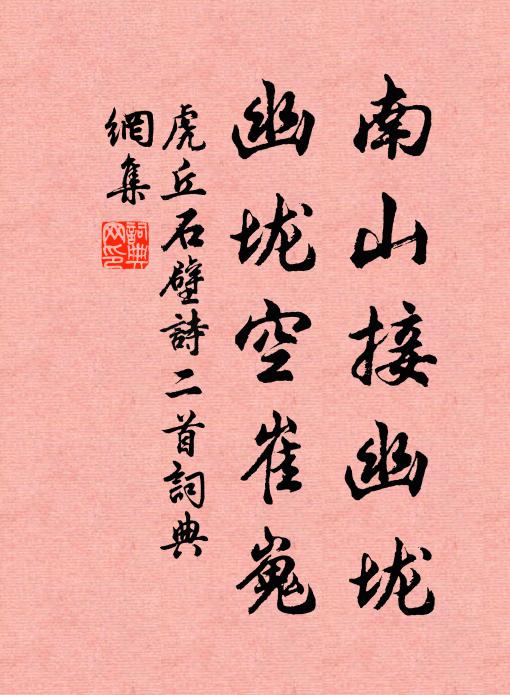 南山接幽垅
幽垅空崔嵬
虎丘石壁詩二首詞典
網集
詞典
网印